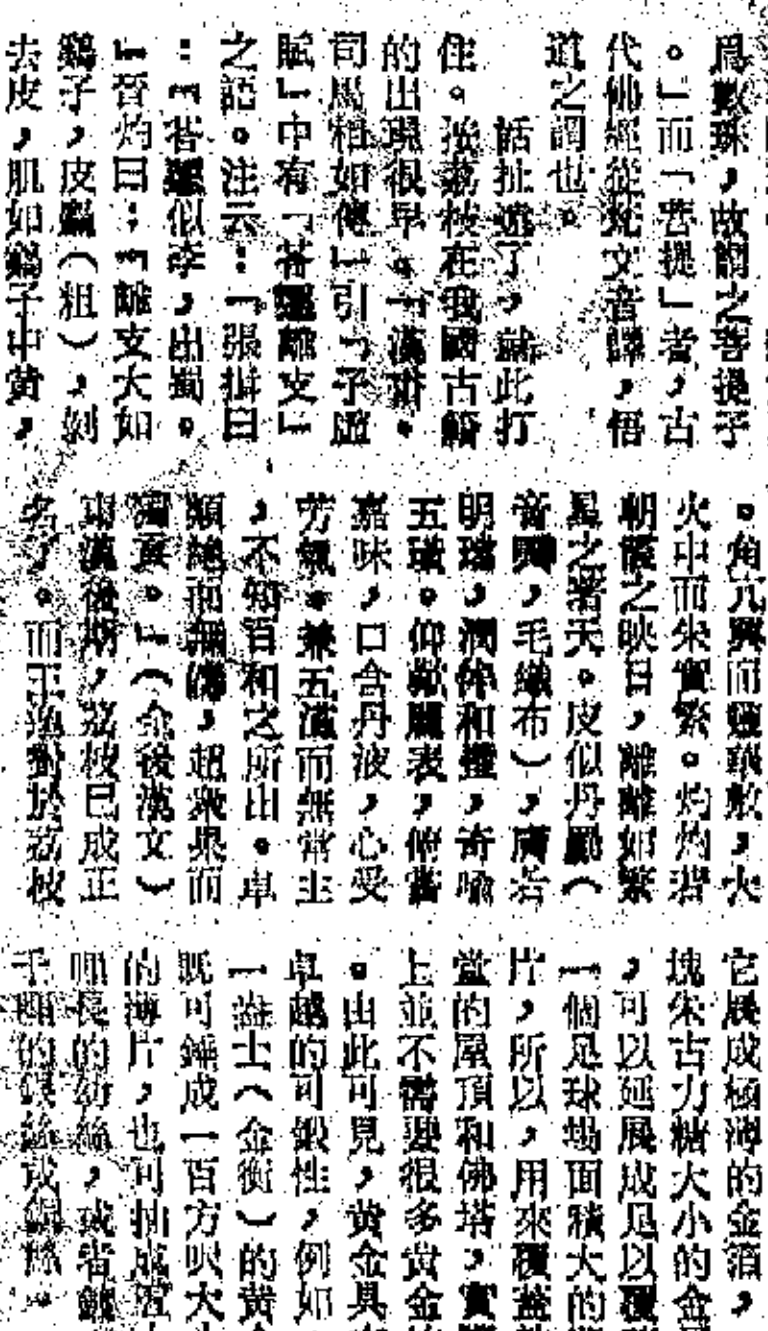 爲數珠，故謂之菩提子
。」而「菩提」者，古
代佛經從梵文音譯，悟
道之謂也。
話扯遠了，就此打
住。按荔枝在我國古籍
的出現很早。「漢書．
司馬相如傳」引「子虛
賦」中有「荅遝離支」
之語。注云：「張揖曰
：『荅遝似李，出蜀。
』晉灼曰：『離支大如
鷄子，皮麤（粗），剝
去皮，肌如鷄子中黃，
。角亢興而靈華敷，大
火中而朱實繁。灼灼若
朝霞之映日，離離如繁
星之著天。皮似丹罽（
音 ，毛織布），膚若
明璫，潤侔和璧，奇喻
五璜。仰歎麗表，俯嘗
嘉味，口含丹液，心受
芳氣。兼五滋而無常主
，不知百和之所出。卓
類絕而無儔，超衆果而
獨貢。」（全後漢文）
東漢後期，荔枝已成正
名了。而王逸對於荔枝
它展成極薄的金箔，
塊朱古力糖大小的金
，可以延展成足以覆
一個足球場面積大的
片，所以，用來覆蓋
堂的屋頂和佛塔，實
上並不需要很多黃金
。由此可見，黃金具
卓越的可鍛性，例如
一盎士（金衡）的黃
既可錘成一百方呎大
的薄片，也可抽成
哩長的幼絲，或者
千 的銀絲或銅絲。